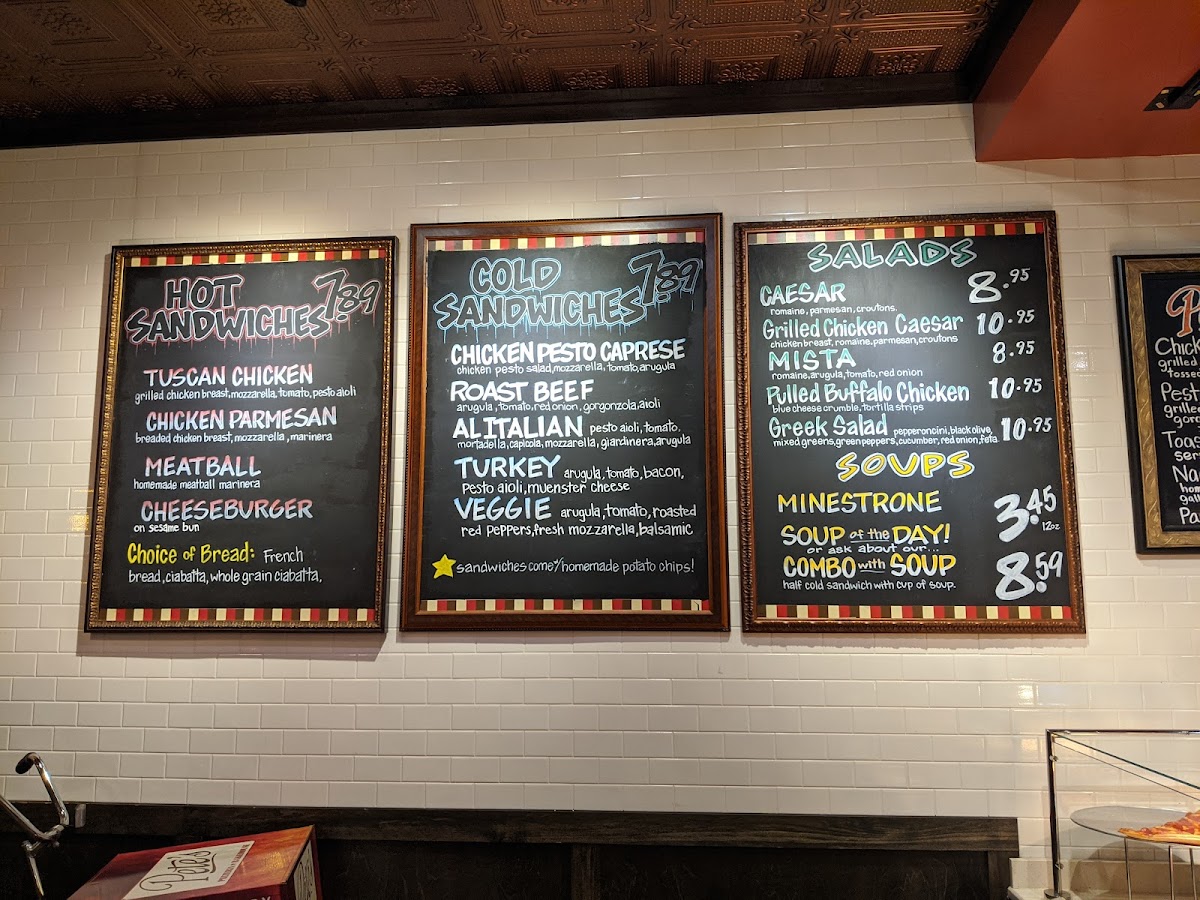 HOT
SANDWICHES 7.89
TUSCAN CHICKEN
grilled chicken breast, mozzarella, tomato, pesto aioli
CHICKEN PARMESAN
breaded chicken breast, mozzarella, marinera
MEATBALL
homemade meatball marinera
CHEESEBURGER
on sesame bun
Choice of Bread: French
bread, ciabatta, whole grain ciabatta,
COLD
SANDWICHES 7.89
CHICKEN PESTO CAPRESE
chicken pesto salad, mozzarella, tomato, arugula
ROAST BEEF
arugula, tomato, red onion, gorgonzola, aioli
ALITALIAN pesto aioli, tomato.
mortadella, capicola, mozzarella, giardinera, arugula
TURKEY arugula, tomato, bacon,
Pesto aioli, muenster cheese
VEGGIE arugula, tomato, roasted
red peppers, fresh mozzarella, balsamic
sandwiches come w/ homemade potato chips!
SALADS
CAESAR 8.95
romaine, parmesan, croutons.
Grilled Chicken Caesar 10.95
chicken breast, romaine, parmesan, croutons
MISTA 8.95
romaine, arugula, tomato, red onion
Pulled Buffalo Chicken 10.95
blue cheese crumble, tortilla strips
Greek Salad pepperoncini, black olive, 10.95
mixed greens, green peppers, cucumber, red onion, feta.
SOUPS
MINESTRONE 3.45
12oz
SOUP of the DAY!
or ask about our...
COMBO with SOUP 8.59
half cold sandwich with cup of soup.
Chick
grilled
tosse
Pest
grille
gor
Toa
ser
Na
hom
gal
Pa
Pete's